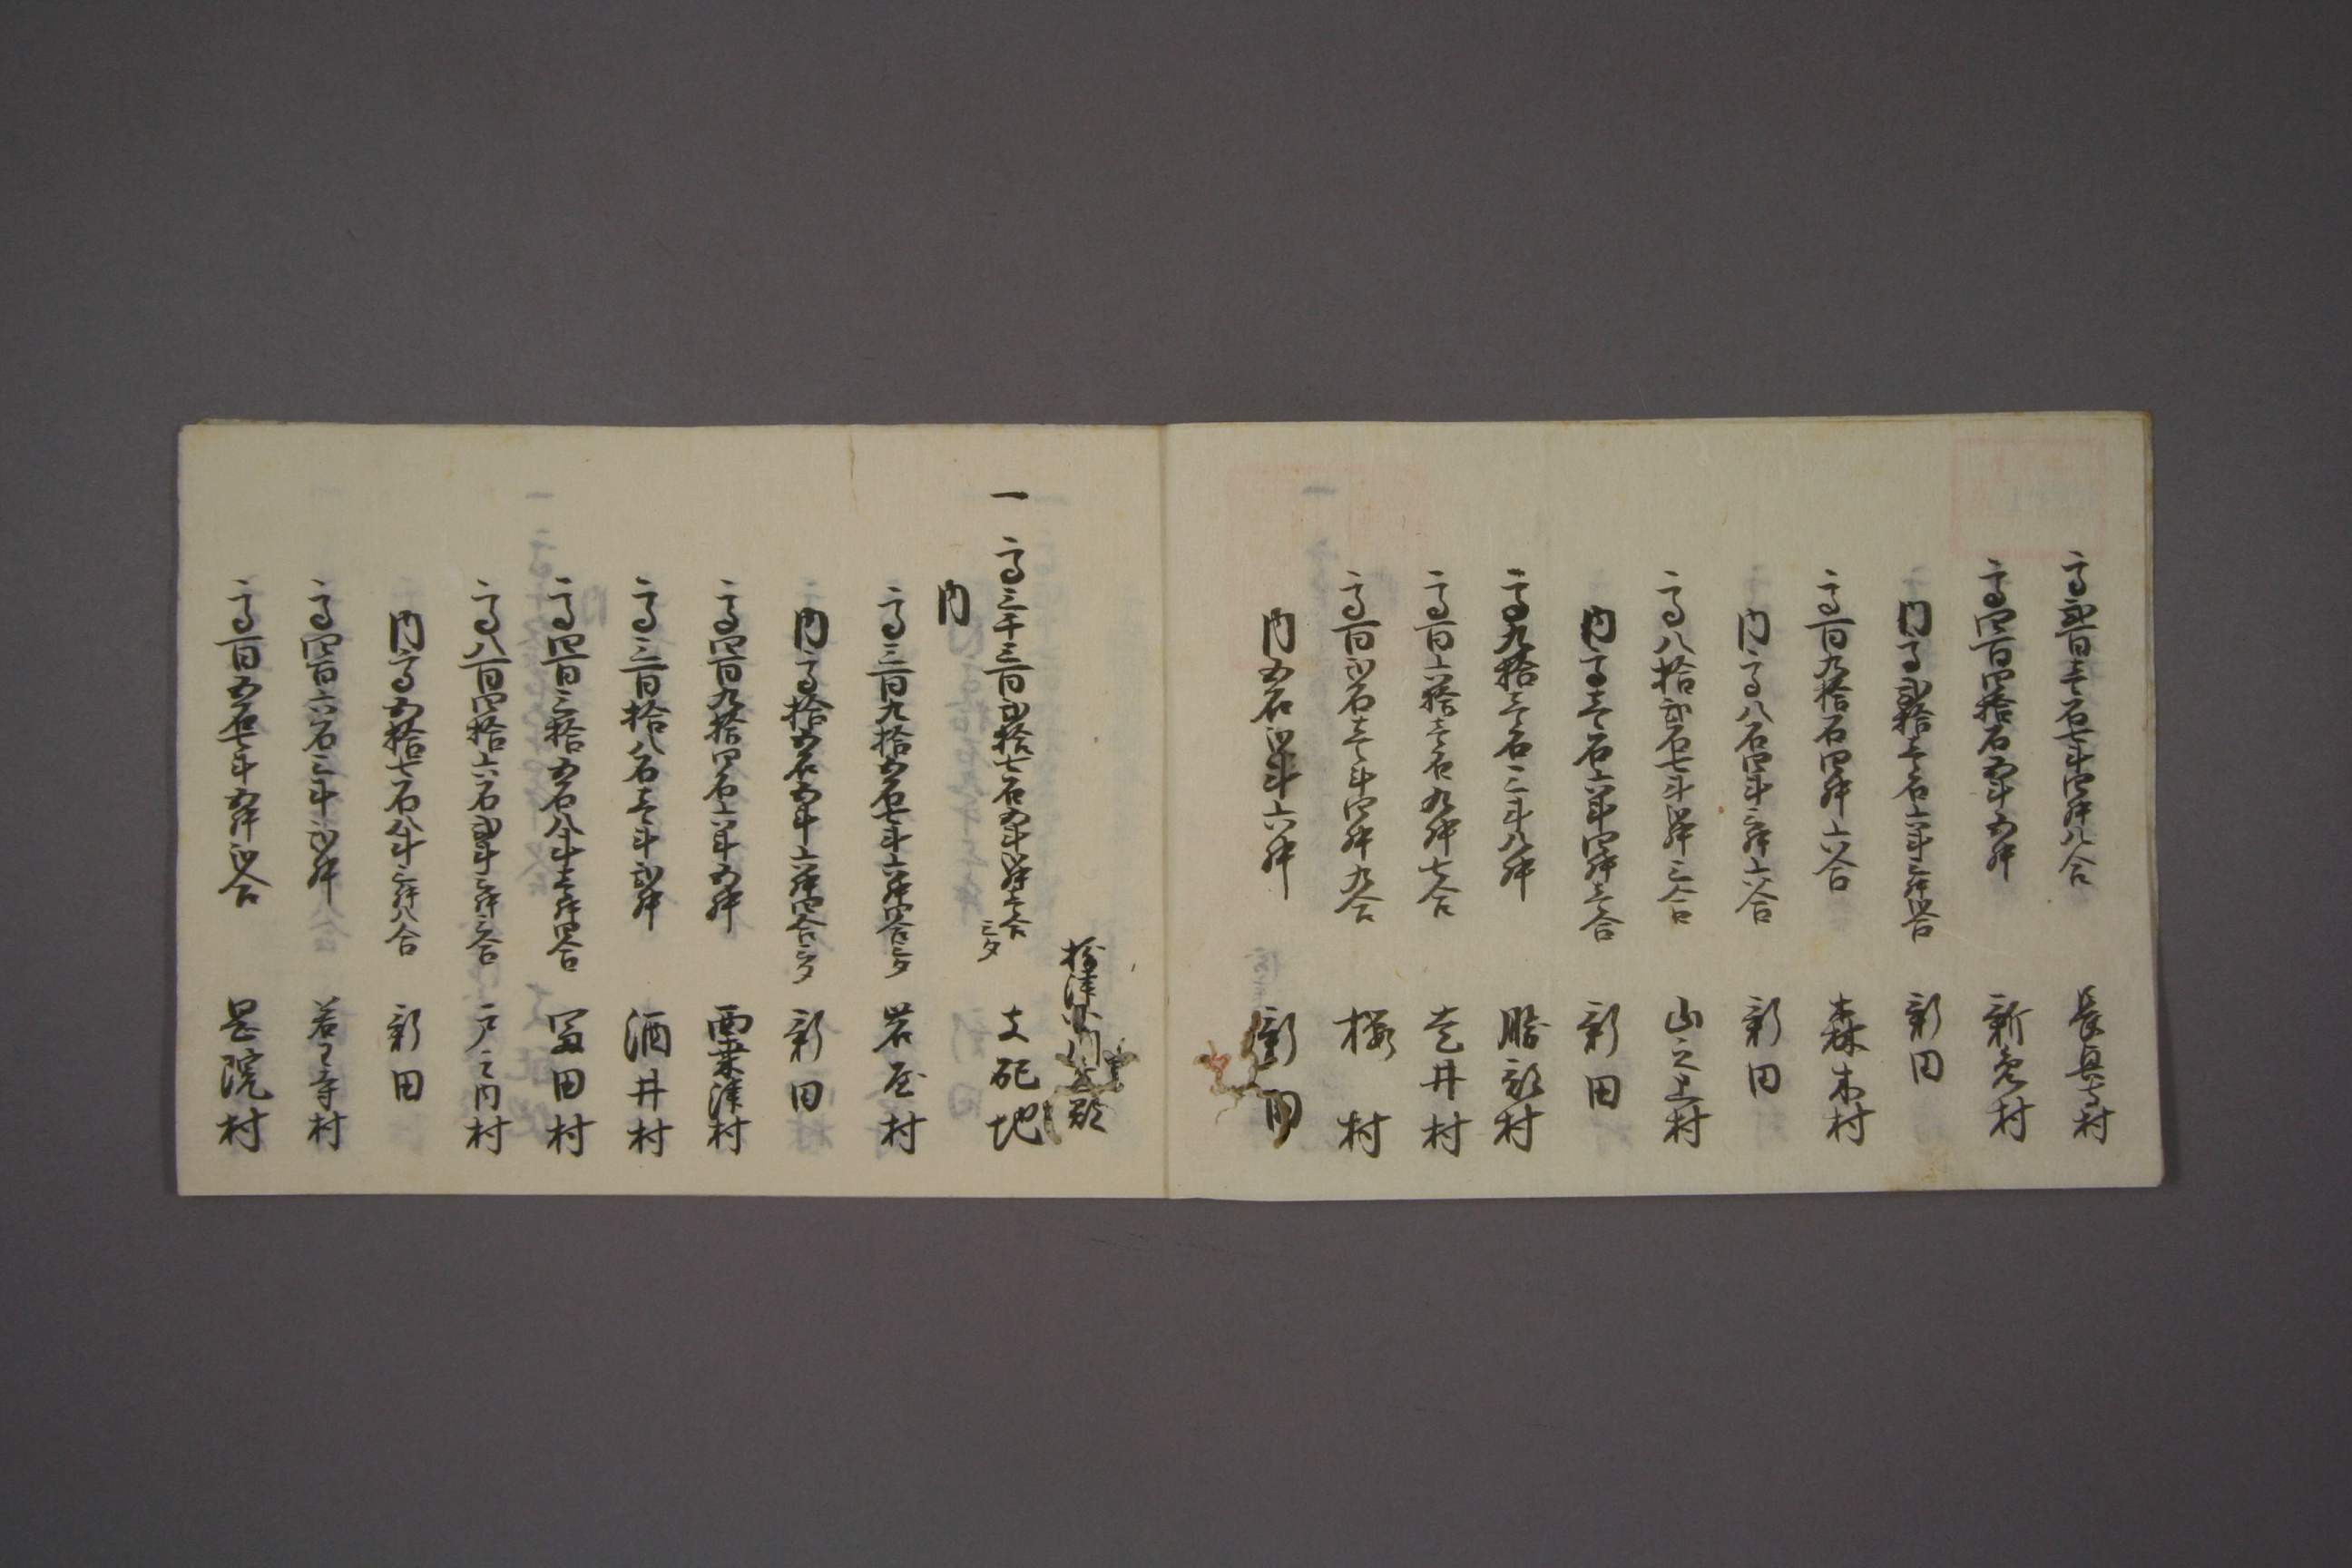 高弐百壱石七斗四升八合 長真寺村
高四百四拾石五斗五升 新免村
内高弐拾壱石六斗三升弐合 新田
高百九拾石四升六合 森本村
内高八石四斗三升六合 新田
高八拾弐石七斗弐升三合 山之上村
内高壱石六斗四升壱合 新田
高九拾壱石三斗八升 勝部村
高百六拾壱石九升七合 走井村
高百弐石壱斗四升九合 桜村
内五石弐斗六升 新田
殿
一 高三千三百弐拾七石五斗弐升壱合三夕 支配地
内
高三百九拾五石七斗六升四合三夕 岩屋村
内高拾五石五斗六升四合三夕 新田
高四百九拾四石六斗五升 西桑津村
高三百拾八石壱斗弐升 酒井村
高四百三拾五石八斗壱升四合 冨田村
高八百四拾六石弐斗三升三合 戸之内村
内高五拾七石八斗三升八合 新田
高四百六石三斗弐升 若王寺村
高百五石七斗五升弐合 昆院村